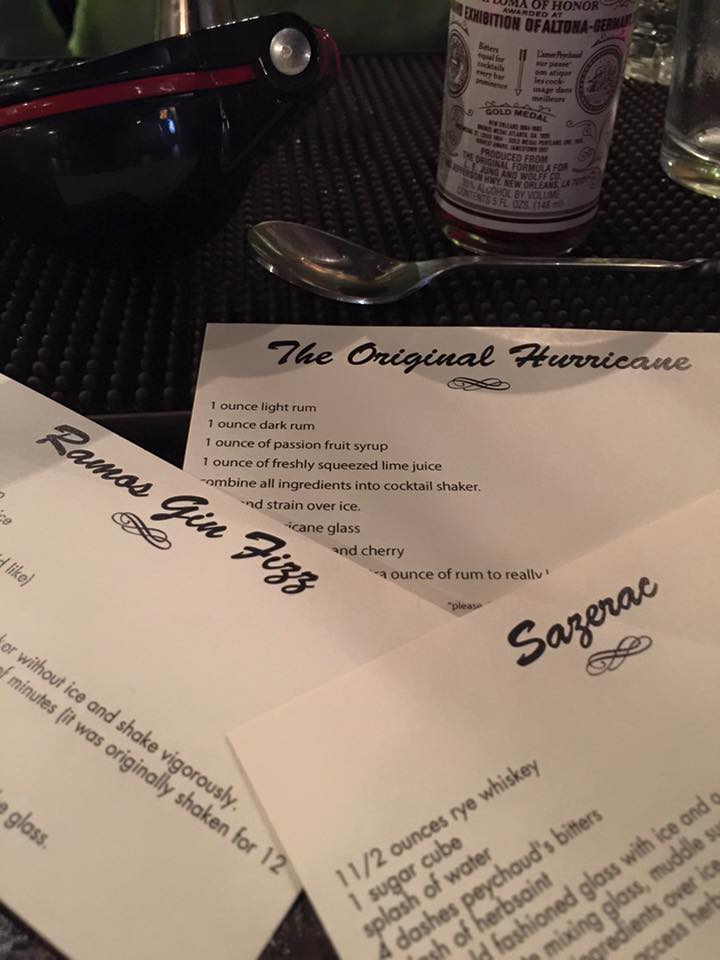 DIPLOMA OF HONOR
AWARDED AT
EXHIBITION OF ALTONA-GERMANY
Bitters
equal for
cocktails
every bar
prominence
L'amer Peychaud
sur passe
om atique
les cock-
usage dans
meilleurs
GOLD MEDAL
NEW ORLEANS 1884-1885
PRODUCED FROM
THE ORIGINAL FORMULA FOR
L. E. JUNG AND WOLFF CO.
JEFFERSON HWY. NEW ORLEANS, LA
35% ALCOHOL BY VOLUME
CONTENTS 5 FL. OZS. (148 ml)
The Original Hurricane
1 ounce light rum
1 ounce dark rum
1 ounce of passion fruit syrup
1 ounce of freshly squeezed lime juice
combine all ingredients into cocktail shaker.
and strain over ice.
icane glass
and cherry
ra ounce of rum to really
"please
Ramos Gin Fizz
ice
'd like)
ker without ice and shake vigorously.
of minutes (it was originally shaken for 12
e glass.
Sazerac
1 1/2 ounces rye whiskey
1 sugar cube
splash of water
4 dashes peychaud's bitters
splash of herbsaint
ld fashioned glass with ice and
te mixing glass, muddle su
ingredients over ice
access herb